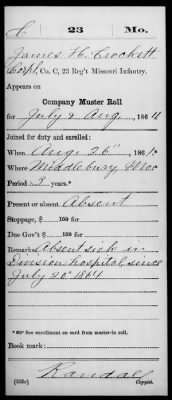 C 23 Mo.
James H. Crockett
Corpl, Co. C, 23 Reg't Missouri Infantry.
Appears on
Company Muster Roll
for July & Aug, 1864
Joined for duty and enrolled:
When Aug 26", 186
Where Middlebury, Moo
Period 3 years.*
Present or absent Absent
Stoppage, $ 100 for
Due Gov't $ 100 for
Remarks: Absent sick in
Division hospital since
July 20" 1864
*See enrollment on card from muster-in roll.
Book mark:
Randall
(358c) Copyist.